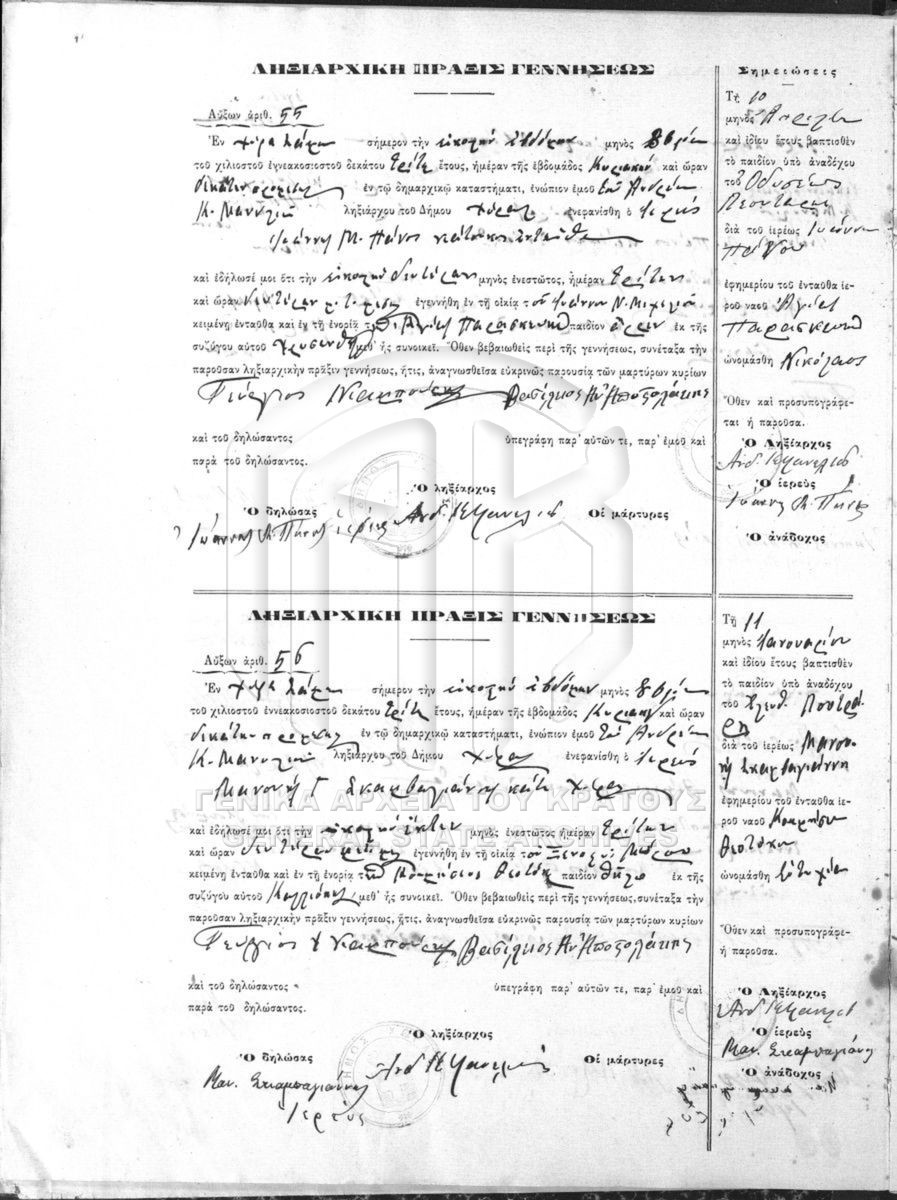 ΛΗΞΙΑΡΧΙΚΗ ΠΡΑΞΙΣ ΓΕΝΝΗΣΕΩΣ
Αὔξων ἀριθ. 55
Ἐν Χώρα Σάμου σήμερον τὴν εἰκοστὴν ἑβδόμην μηνὸς
τοῦ χιλιοστοῦ ἐννεακοσιοστοῦ δεκάτου τρίτου ἔτους, ἡμέραν τῆς ἑβδομάδος Κυριακὴν καὶ ὥραν
δεκάτην π.μ. ἐν τῷ δημαρχικῷ καταστήματι, ἐνώπιον ἐμοῦ τοῦ Ἀνδρέα
Κ. Μανωλιοῦ ληξιάρχου τοῦ Δήμου Χώρας ἐνεφανίσθη ὁ ἱερεὺς
Ἰωάννης Μ. Πάνος κάτοικος ἐνταῦθα
καὶ ἐδήλωσέ μοι ὅτι τὴν εἰκοστὴν δευτέραν μηνὸς ἐνεστῶτος, ἡμέραν Τρίτην
καὶ ὥραν δευτέραν ἐγεννήθη ἐν τῇ οἰκίᾳ τοῦ Ἰωάννου Ν.
κειμένῃ ἐνταῦθα καὶ ἐν τῇ ἐνορίᾳ τῆς Ἁγίας Παρασκευῆς παιδίον ἄρρεν ἐκ τῆς
συζύγου αὐτοῦ μεθ' ἧς συνοικεῖ. Ὅθεν βεβαιωθεὶς περὶ τῆς γεννήσεως, συνέταξα τὴν
παροῦσαν ληξιαρχικὴν πρᾶξιν γεννήσεως, ἥτις, ἀναγνωσθεῖσα εὐκρινῶς παρουσίᾳ τῶν μαρτύρων κυρίων
Γεώργιος Βασίλειος Ἀν. Ἀποστολάκης
καὶ τοῦ δηλώσαντος ὑπεγράφη παρ' αὐτῶν τε, παρ' ἐμοῦ καὶ
παρὰ τοῦ δηλώσαντος.
Ὁ ληξίαρχος
Ὁ δηλώσας Οἱ μάρτυρες
Ἀνδ. Κ. Μανωλιοῦ
Ἰωάννης Μ. Πάνος ἱερεὺς
Σημειώσεις
Τῇ 10
μηνὸς Ἀπριλίου
καὶ ἰδίου ἔτους βαπτισθὲν
τὸ παιδίον ὑπὸ ἀναδόχου
τοῦ Ὀδυσσέως
Λεονταρῆ
διὰ τοῦ ἱερέως Ἰωάννου
Πάνου
ἐφημερίου τοῦ ἐνταῦθα ἱε-
ροῦ ναοῦ Ἁγίας
Παρασκευῆς
ὠνομάσθη Νικόλαος
Ὅθεν καὶ προσυπογράφε-
ται ἡ παροῦσα.
Ὁ Ληξίαρχος
Ἀνδ. Κ. Μανωλιοῦ
Ὁ ἱερεὺς
Ἰωάννης Μ. Πάνος
Ὁ ἀνάδοχος
ΛΗΞΙΑΡΧΙΚΗ ΠΡΑΞΙΣ ΓΕΝΝΗΣΕΩΣ
Αὔξων ἀριθ. 56
Ἐν Χώρα Σάμου σήμερον τὴν εἰκοστὴν ἑβδόμην μηνὸς
τοῦ χιλιοστοῦ ἐννεακοσιοστοῦ δεκάτου τρίτου ἔτους, ἡμέραν τῆς ἑβδομάδος Κυριακὴν καὶ ὥραν
δεκάτην ἐν τῷ δημαρχικῷ καταστήματι, ἐνώπιον ἐμοῦ τοῦ Ἀνδρέα
Κ. Μανωλιοῦ ληξιάρχου τοῦ Δήμου Χώρας ἐνεφανίσθη ὁ ἱερεὺς
Μανουὴλ Γ. κάτοικος Χώρας
ΓΕΝΙΚΑ ΑΡΧΕΙΑ ΤΟΥ ΚΡΑΤΟΥΣ
GENERAL STATE ARCHIVES
καὶ ἐδήλωσέ μοι ὅτι τὴν εἰκοστὴν μηνὸς ἐνεστῶτος ἡμέραν
καὶ ὥραν δευτέραν ἐγεννήθη ἐν τῇ οἰκίᾳ τοῦ
κειμένῃ ἐνταῦθα καὶ ἐν τῇ ἐνορίᾳ τῆς Κοιμήσεως Θεοτόκου παιδίον θῆλυ ἐκ τῆς
συζύγου αὐτοῦ Καλλιόπης μεθ' ἧς συνοικεῖ. Ὅθεν βεβαιωθεὶς περὶ τῆς γεννήσεως, συνέταξα τὴν
παροῦσαν ληξιαρχικὴν πρᾶξιν γεννήσεως, ἥτις, ἀναγνωσθεῖσα εὐκρινῶς παρουσίᾳ τῶν μαρτύρων κυρίων
Γεώργιος Βασίλειος Ἀν. Ἀποστολάκης
καὶ τοῦ δηλώσαντος ὑπεγράφη παρ' αὐτῶν τε, παρ' ἐμοῦ καὶ
παρὰ τοῦ δηλώσαντος.
Ὁ ληξίαρχος
Ὁ δηλώσας Οἱ μάρτυρες
Ἀνδ. Κ. Μανωλιοῦ
Μαν. Σκαμπαγιάννης
Ἱερεύς
Τῇ 11
μηνὸς Ἰανουαρίου
καὶ ἰδίου ἔτους βαπτισθὲν
τὸ παιδίον ὑπὸ ἀναδόχου
τοῦ
διὰ τοῦ ἱερέως Μανου-
ὴλ
ἐφημερίου τοῦ ἐνταῦθα ἱε-
ροῦ ναοῦ Κοιμήσεως
Θεοτόκου
ὠνομάσθη Εὐτυχία
Ὅθεν καὶ προσυπογράφε-
ἡ παροῦσα.
Ὁ Ληξίαρχος
Ἀνδ. Κ. Μανωλιοῦ
Ὁ ἱερεὺς
Μαν. Σκαμπαγιάννης
Ὁ ἀνάδοχος